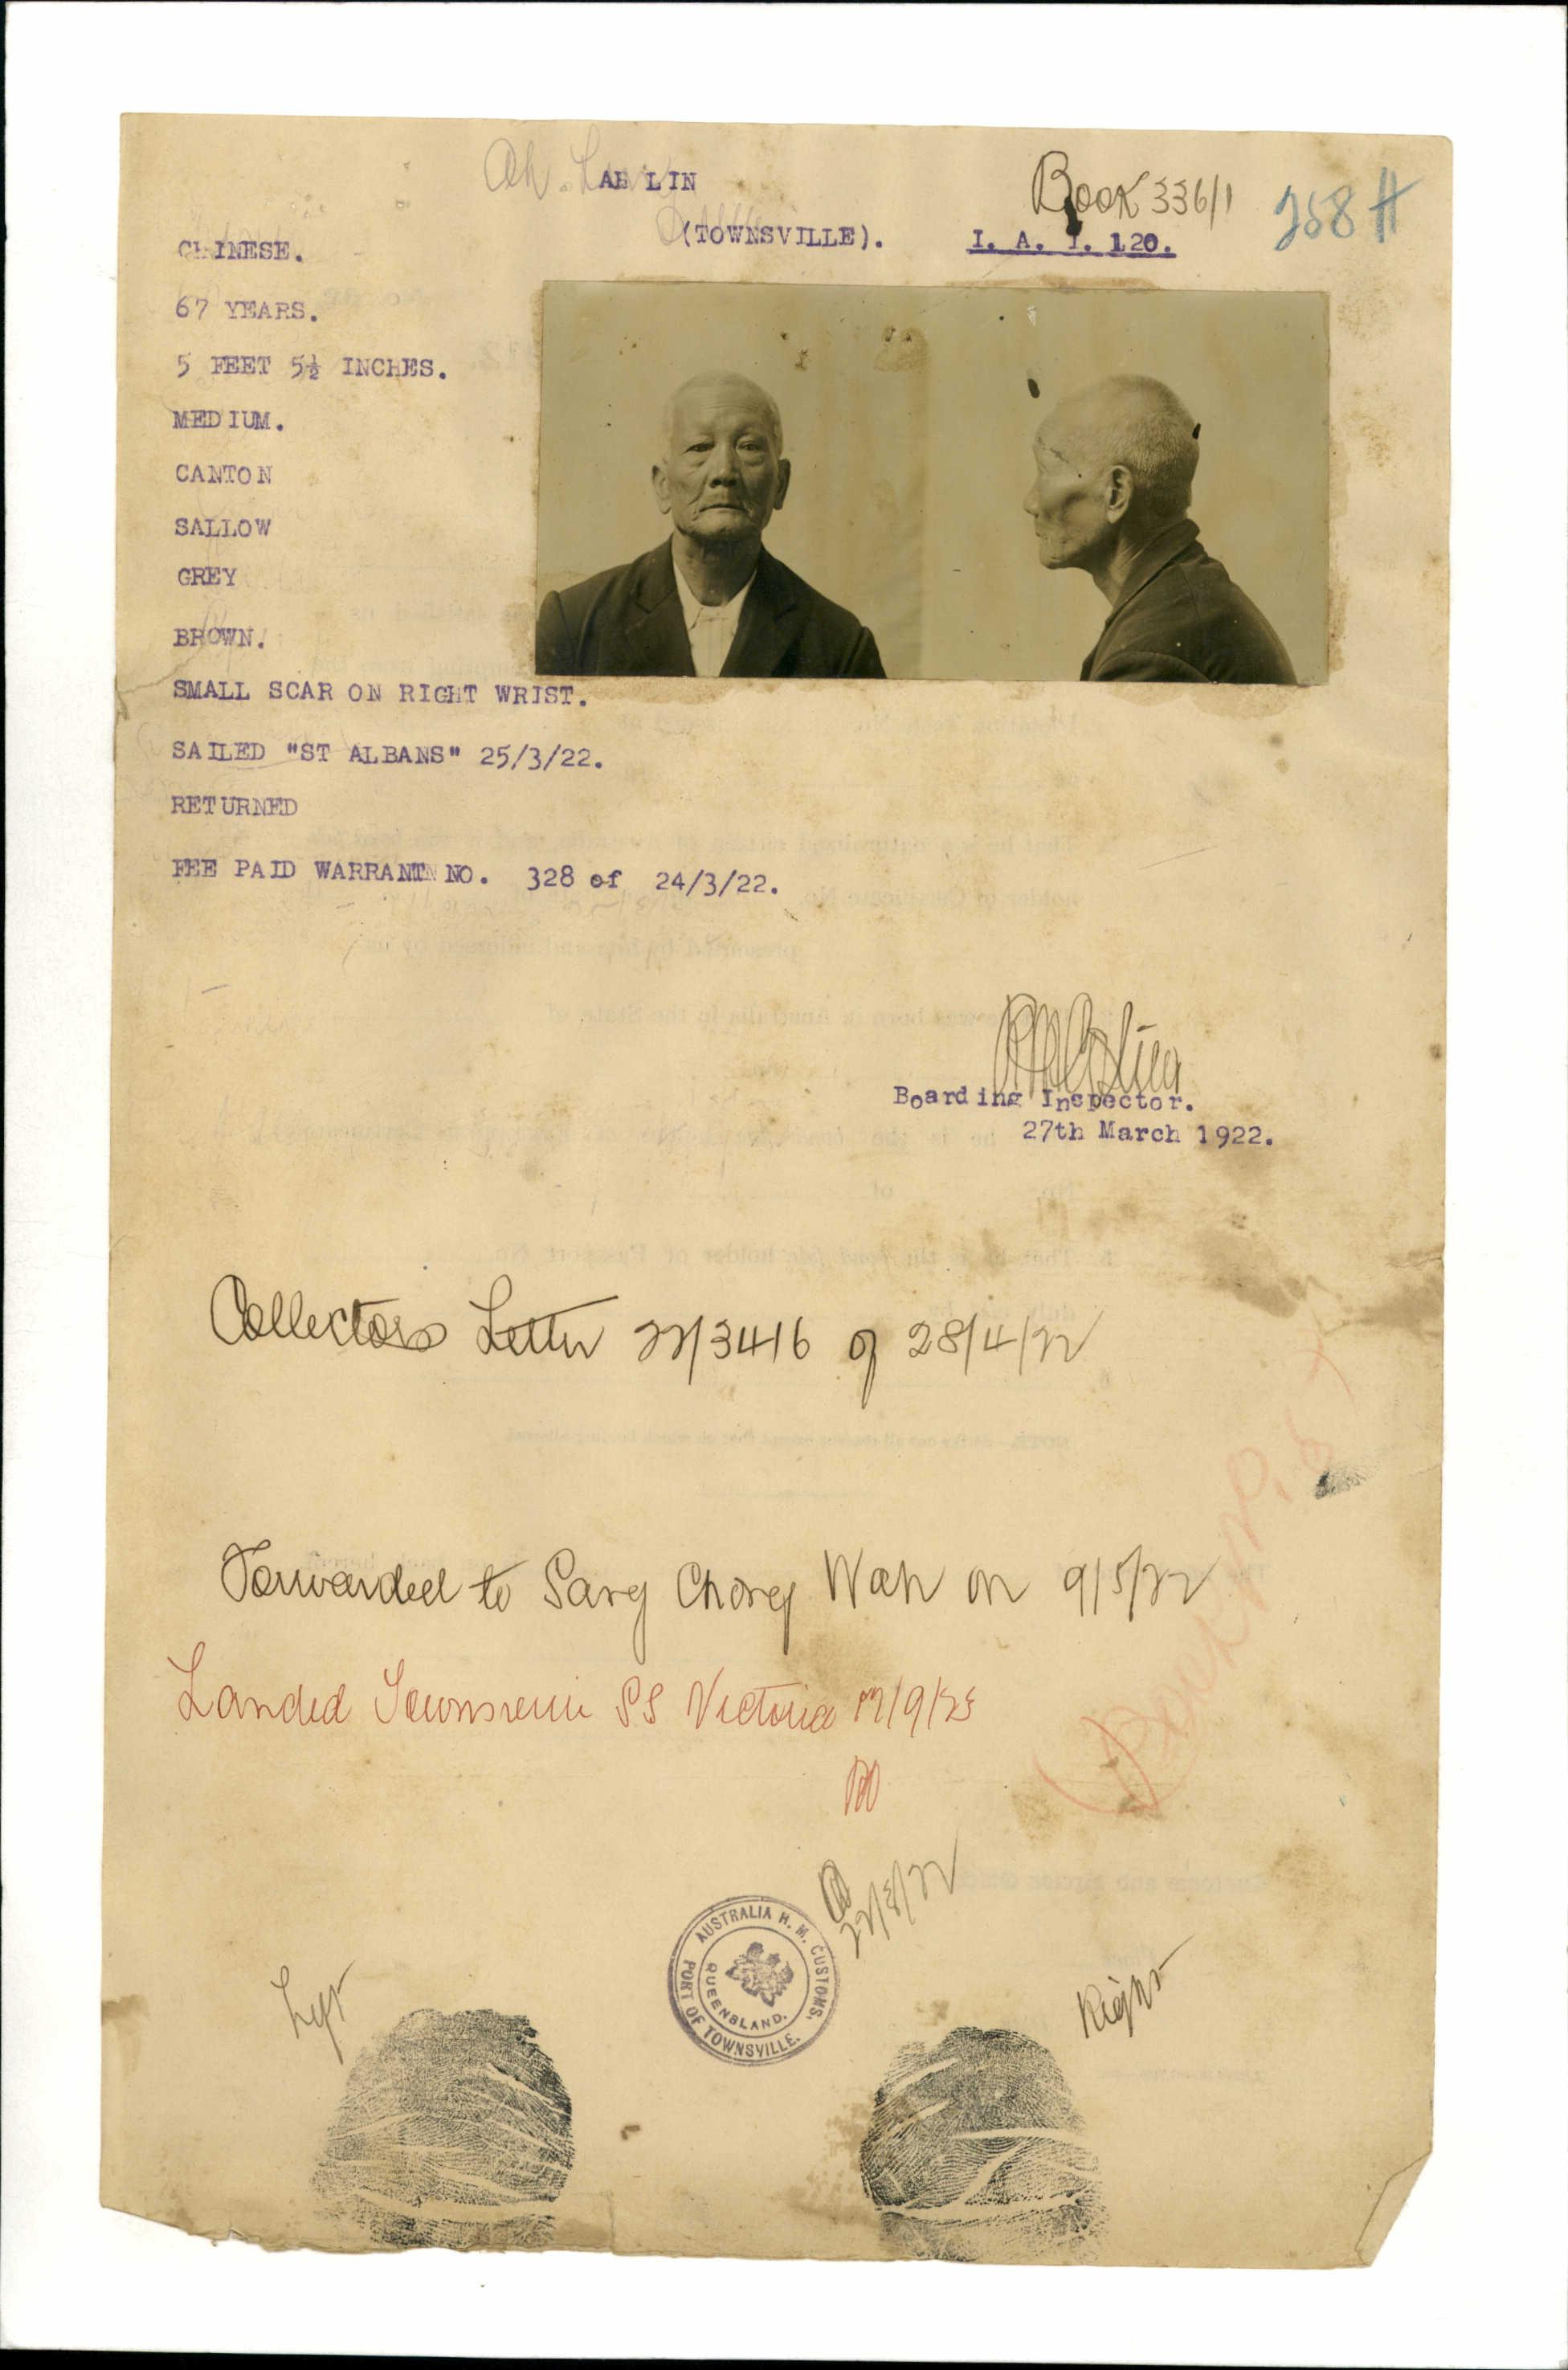 AH LIN
Book 336/1
258 H
(TOWNSVILLE).
I. A. I. 120.
CHINESE.
67 YEARS.
5 FEET 5½ INCHES.
MEDIUM.
CANTON
SALLOW
GREY
BROWN.
SMALL SCAR ON RIGHT WRIST.
SAILED "ST ALBANS" 25/3/22.
RETURNED
FEE PAID WARRANT NO. 328 of 24/3/22.
Boarding Inspector.
27th March 1922.
Collectors Letter 22/3416 of 28/4/22
Forwarded to Sang Chong Wah on 9/5/22
Landed Townsville SS Victoria
22/8/22
AUSTRALIA H. M. CUSTOMS.
QUEENSLAND.
PORT OF TOWNSVILLE.
Left
Right